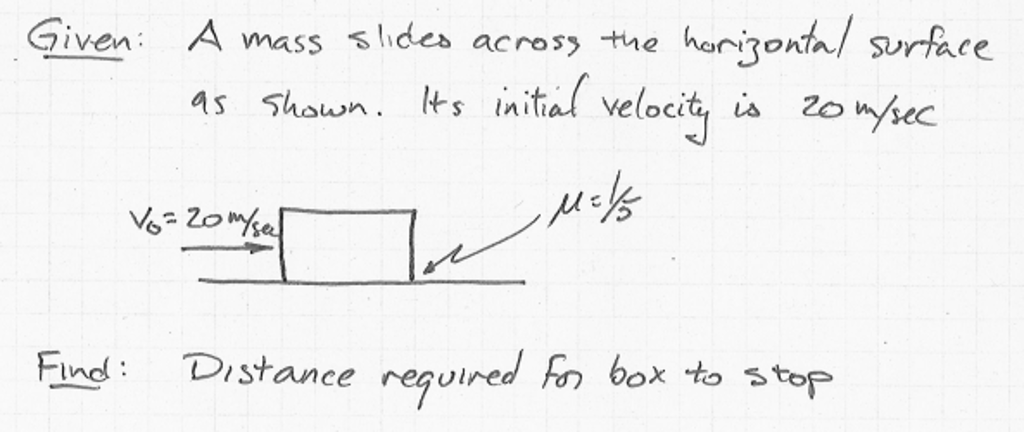 Given: A mass slides across the horizontal surface
as shown. Its initial velocity is 20 m/sec
V₀ = 20 m/sec
μ = 1/5
Find: Distance required for box to stop